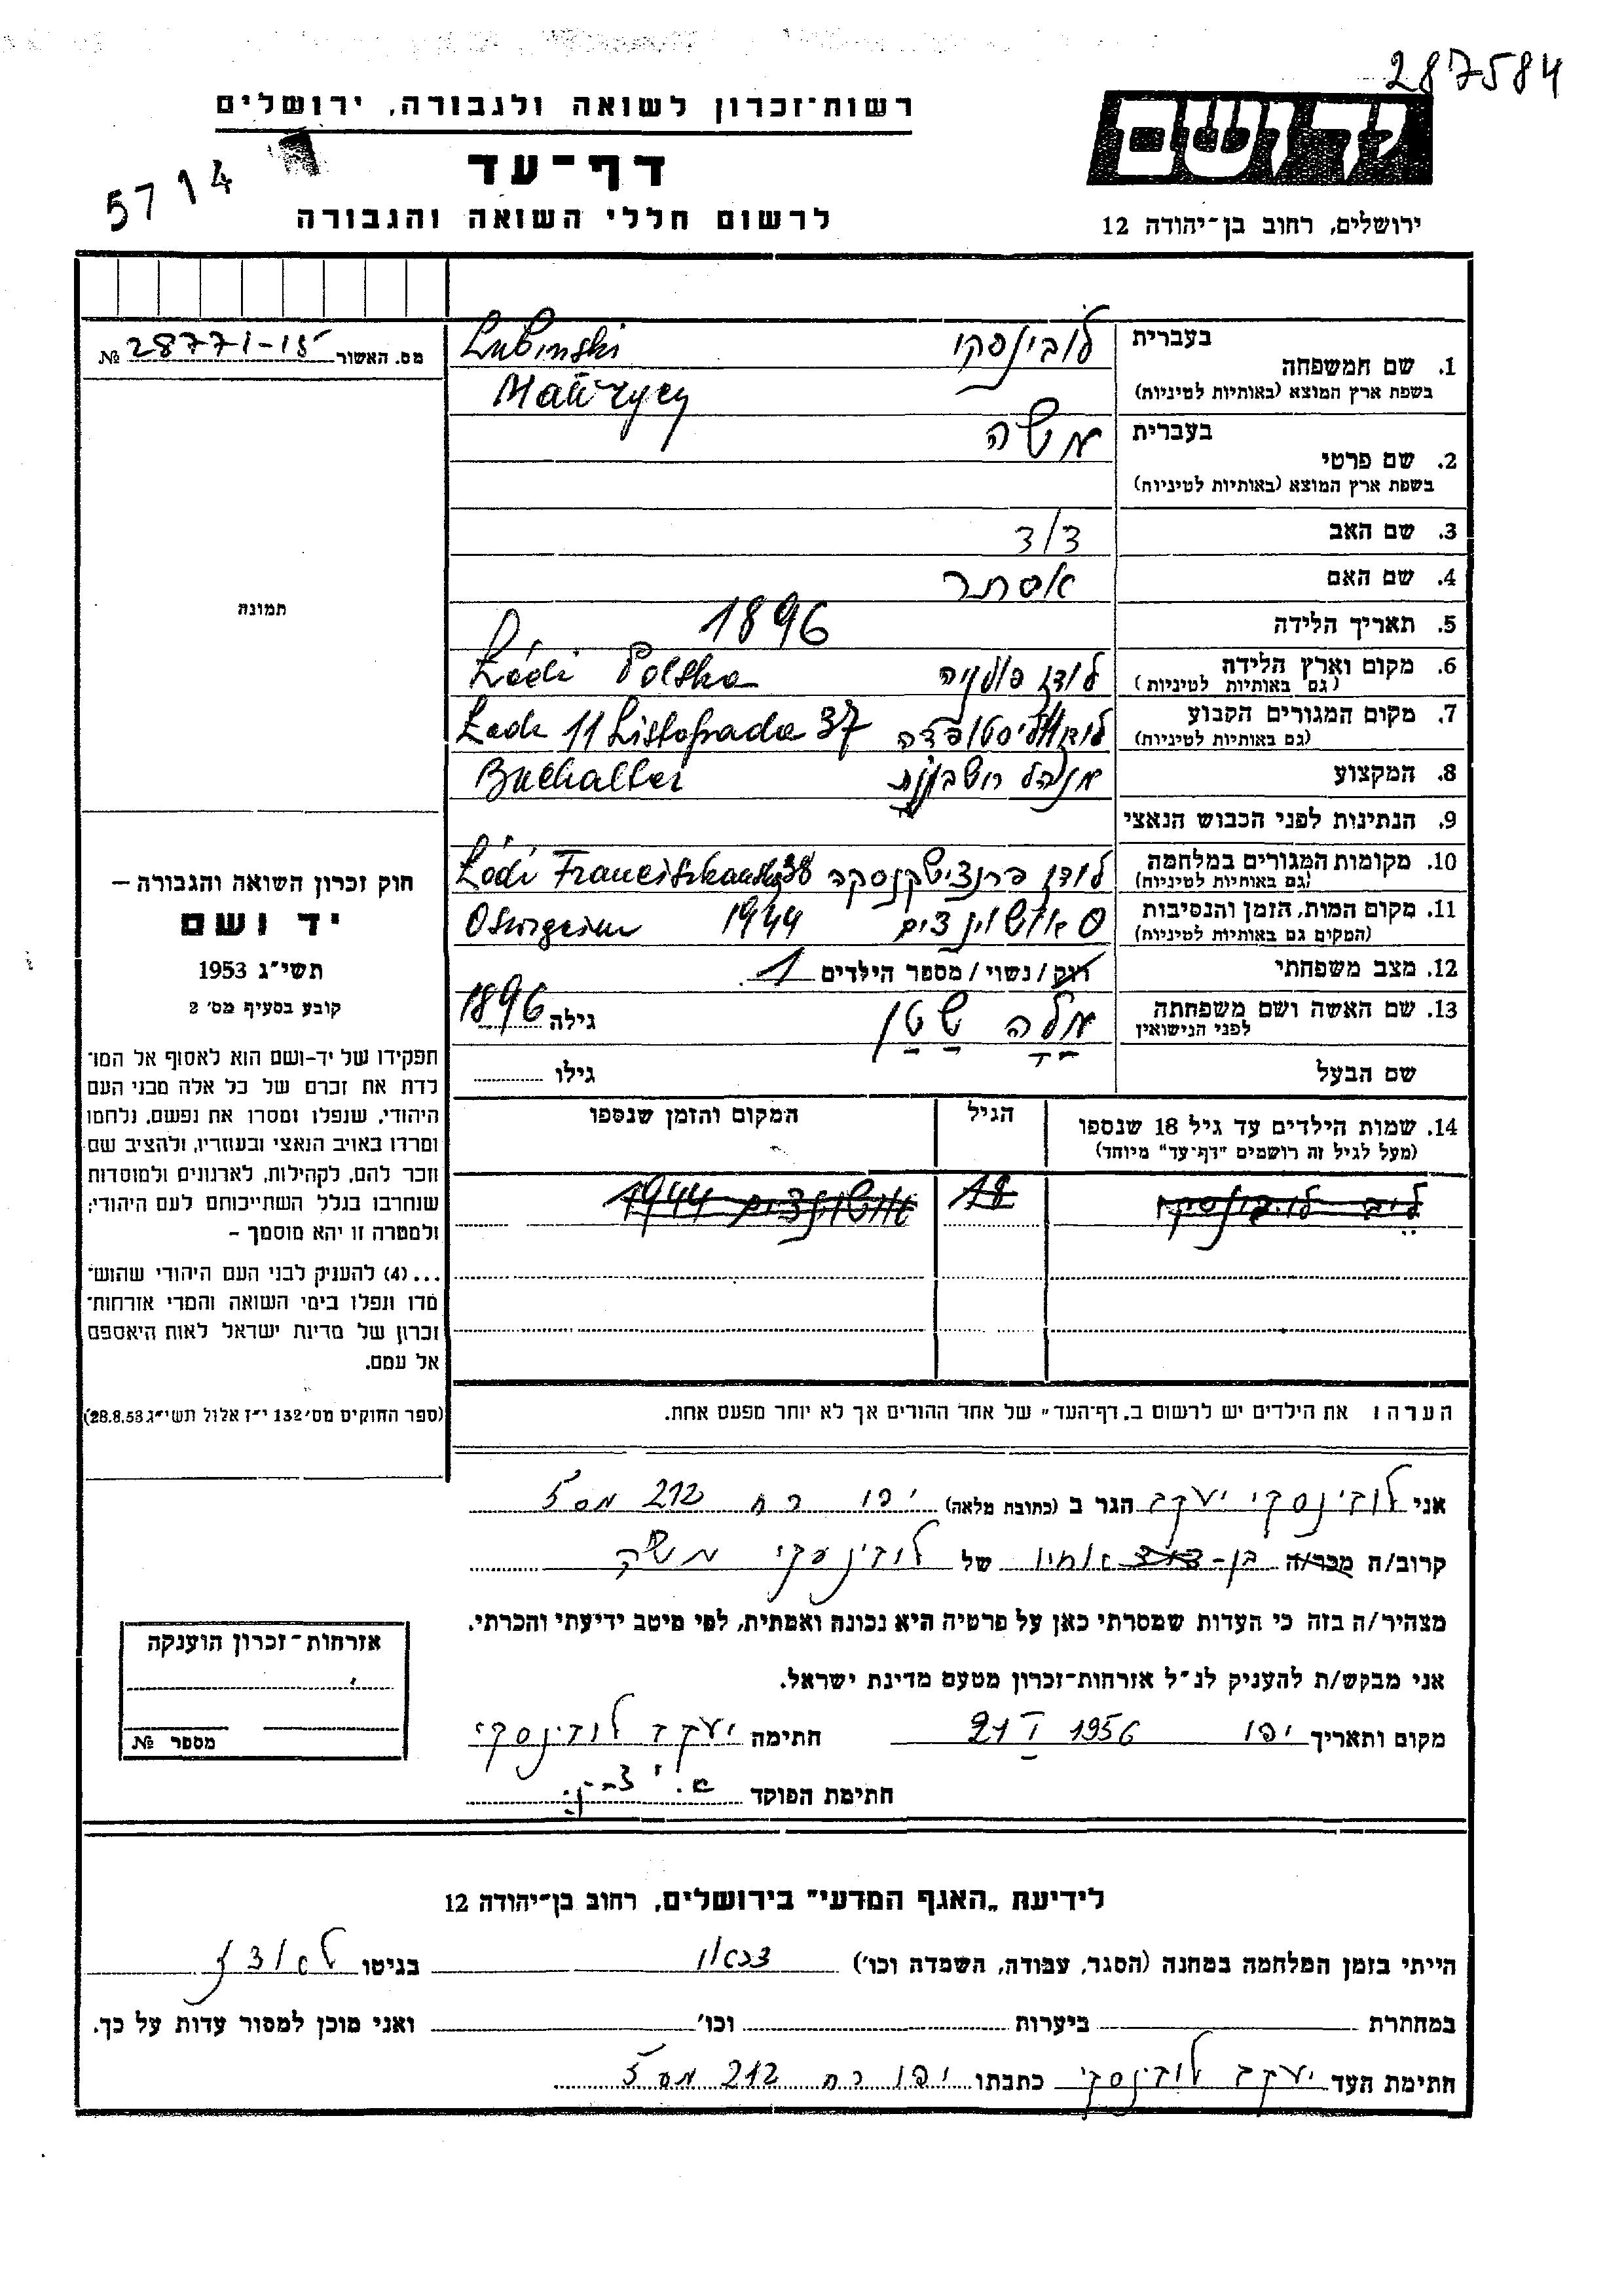 287584
רשות־זכרון לשואה ולגבורה, ירושלים
דף־עד
לרשום חללי השואה והגבורה
5714
ידושם
ירושלים, רחוב בן־יהודה 12
מס. האשור 28771-15 №
תמונה
חוק זכרון השואה והגבורה —
יד ושם
תשי"ג 1953
קובע בסעיף מס׳ 2
תפקידו של יד-ושם הוא לאסוף אל המו־
לדת את זכרם של כל אלה מבני העם
היהודי, שנפלו ומסרו את נפשם, נלחמו
ומרדו באויב הנאצי ובעוזריו, ולהציב שם
וזכר להם, לקהילות, לארגונים ולמוסדות
שנחרבו בגלל השתייכותם לעם היהודי;
ולמטרה זו יהא מוסמך –
...(4) להעניק לבני העם היהודי שהוש־
מדו ונפלו בימי השואה והמרי אזרחות־
זכרון של מדינת ישראל לאות היאספם
אל עמם.
(ספר החוקים מס׳ 132 י"ז אלול תשי"ג 28.8.53)
בעברית לובינסקי Lubinski
1. שם המשפחה
בשפת ארץ המוצא (באותיות לטיניות) Maurycy
בעברית משה
2. שם פרטי
בשפת ארץ המוצא (באותיות לטיניות)
3. שם האב דוד
4. שם האם אסתר
5. תאריך הלידה 1896
6. מקום וארץ הלידה לודז פולניה Łódź Polska
(גם באותיות לטיניות)
7. מקום המגורים הקבוע 11 Listopada 37
(גם באותיות לטיניות)
8. המקצוע מנהל חשבונות Buchalter
9. הנתינות לפני הכבוש הנאצי
10. מקומות המגורים במלחמה לודז פרנצישקנסקה 38 Łódź Franciszkańska
(גם באותיות לטיניות)
11. מקום המות, הזמן והנסיבות אושוינצים 1944
(המקום גם באותיות לטיניות)
12. מצב משפחתי רוק / נשוי / מספר הילדים 1
13. שם האשה ושם משפחתה מלה שטן גילה 1896
לפני הנישואין
שם הבעל גילו
14. שמות הילדים עד גיל 18 שנספו הגיל המקום והזמן שנספו
(מעל לגיל זה רושמים "דף־עד" מיוחד)
לובינסקי 18 אושוינצים 1944
הערה: את הילדים יש לרשום ב„דף־העד" של אחד ההורים אך לא יותר מפעם אחת.
אני לובינסקי יעקב הגר ב (כתובת מלאה) יפו רח 212 מס 5
קרוב/ה מכר/ה בן- אחיו של לובינסקי משה
מצהיר/ה בזה כי העדות שמסרתי כאן על פרטיה היא נכונה ואמתית, לפי מיטב ידיעתי והכרתי.
אני מבקש/ת להעניק לנ"ל אזרחות־זכרון מטעם מדינת ישראל.
מקום ותאריך יפו 21 I 1956 חתימה יעקב לובינסקי
חתימת הפוקד
אזרחות־זכרון הוענקה
מספר №
לידיעת „האגף המדעי" בירושלים, רחוב בן־יהודה 12
הייתי בזמן המלחמה במחנה (הסגר, עבודה, השמדה וכו׳) דכאו בגיטו לאדז
במחתרת ביערות וכו׳ ואני מוכן למסור עדות על כך.
חתימת העד יעקב לובינסקי כתבתו יפו רח 212 מס 5